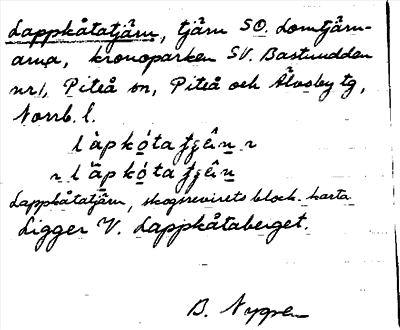 Lappkåtatjärn, tjärn SO. Lomtjärn-
arna, kronoparken SV. Bastuudden
nr 1, Piteå sn, Piteå och Älvsby tg,
Norrb. l.
Lappkåtatjärn, skogsrevirets block. karta
Ligger V. Lappkåtaberget.
B. Nygren